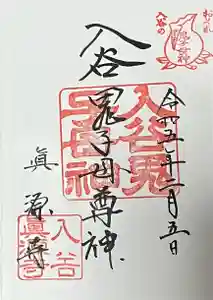 令和五年二月五日
入谷
鬼子母尊神
眞源寺
入谷鬼
子母神
入谷
眞源寺
入谷の
鬼子母神